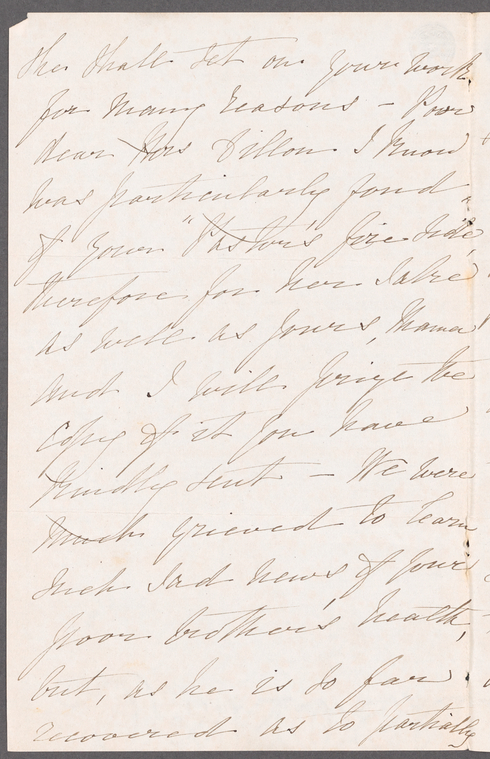 She shall set on your work
for many reasons – Poor
dear Mrs Dillon I know
was particularly fond
of your "Pastor's fire side,"
therefore for her sake
as well as yours, Mama
and I will prize the
copy of it you have
kindly sent – We were
much grieved to learn
such sad news of your
poor brother's health,
but, as he is so far
recovered as to partially